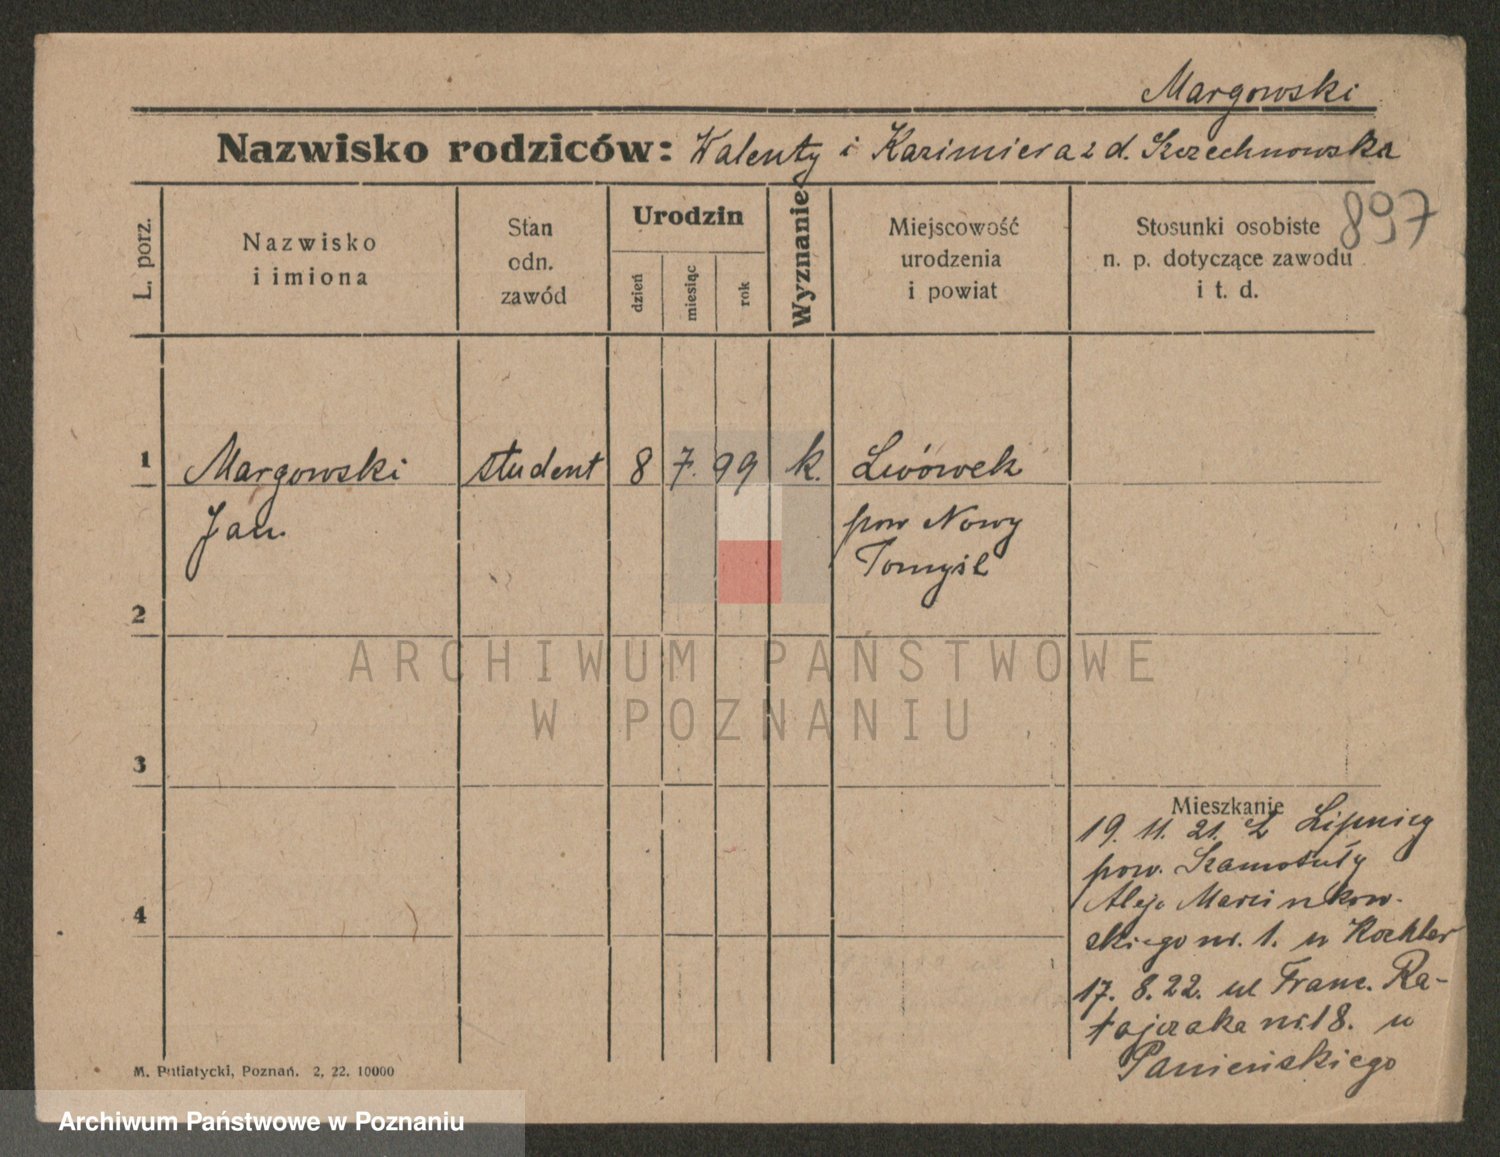 Margowski
Nazwisko rodziców: Walenty i Kazimiera z d. Szczechnowska
897
L. porz.
Nazwisko
i imiona
Stan
odn.
zawód
Urodzin
dzień
miesiąc
rok
Wyznanie
Miejscowość
urodzenia
i powiat
Stosunki osobiste
n. p. dotyczące zawodu
i t. d.
1
Margowski student 8 7. 99 k. Lwówek
Jan. pow Nowy
Tomyśl
2
ARCHIWUM PAŃSTWOWE
W POZNANIU
3
Mieszkanie
19. 11. 21. z Lipnicy
pow. Szamotuły
4
Aleje Marcinkow-
skiego nr. 1. u Koehler
17. 8. 22. ul Franc. Ra-
tajczaka nr. 18. u
Panieńskiego
M. Putiatycki, Poznań. 2, 22. 10000
Archiwum Państwowe w Poznaniu